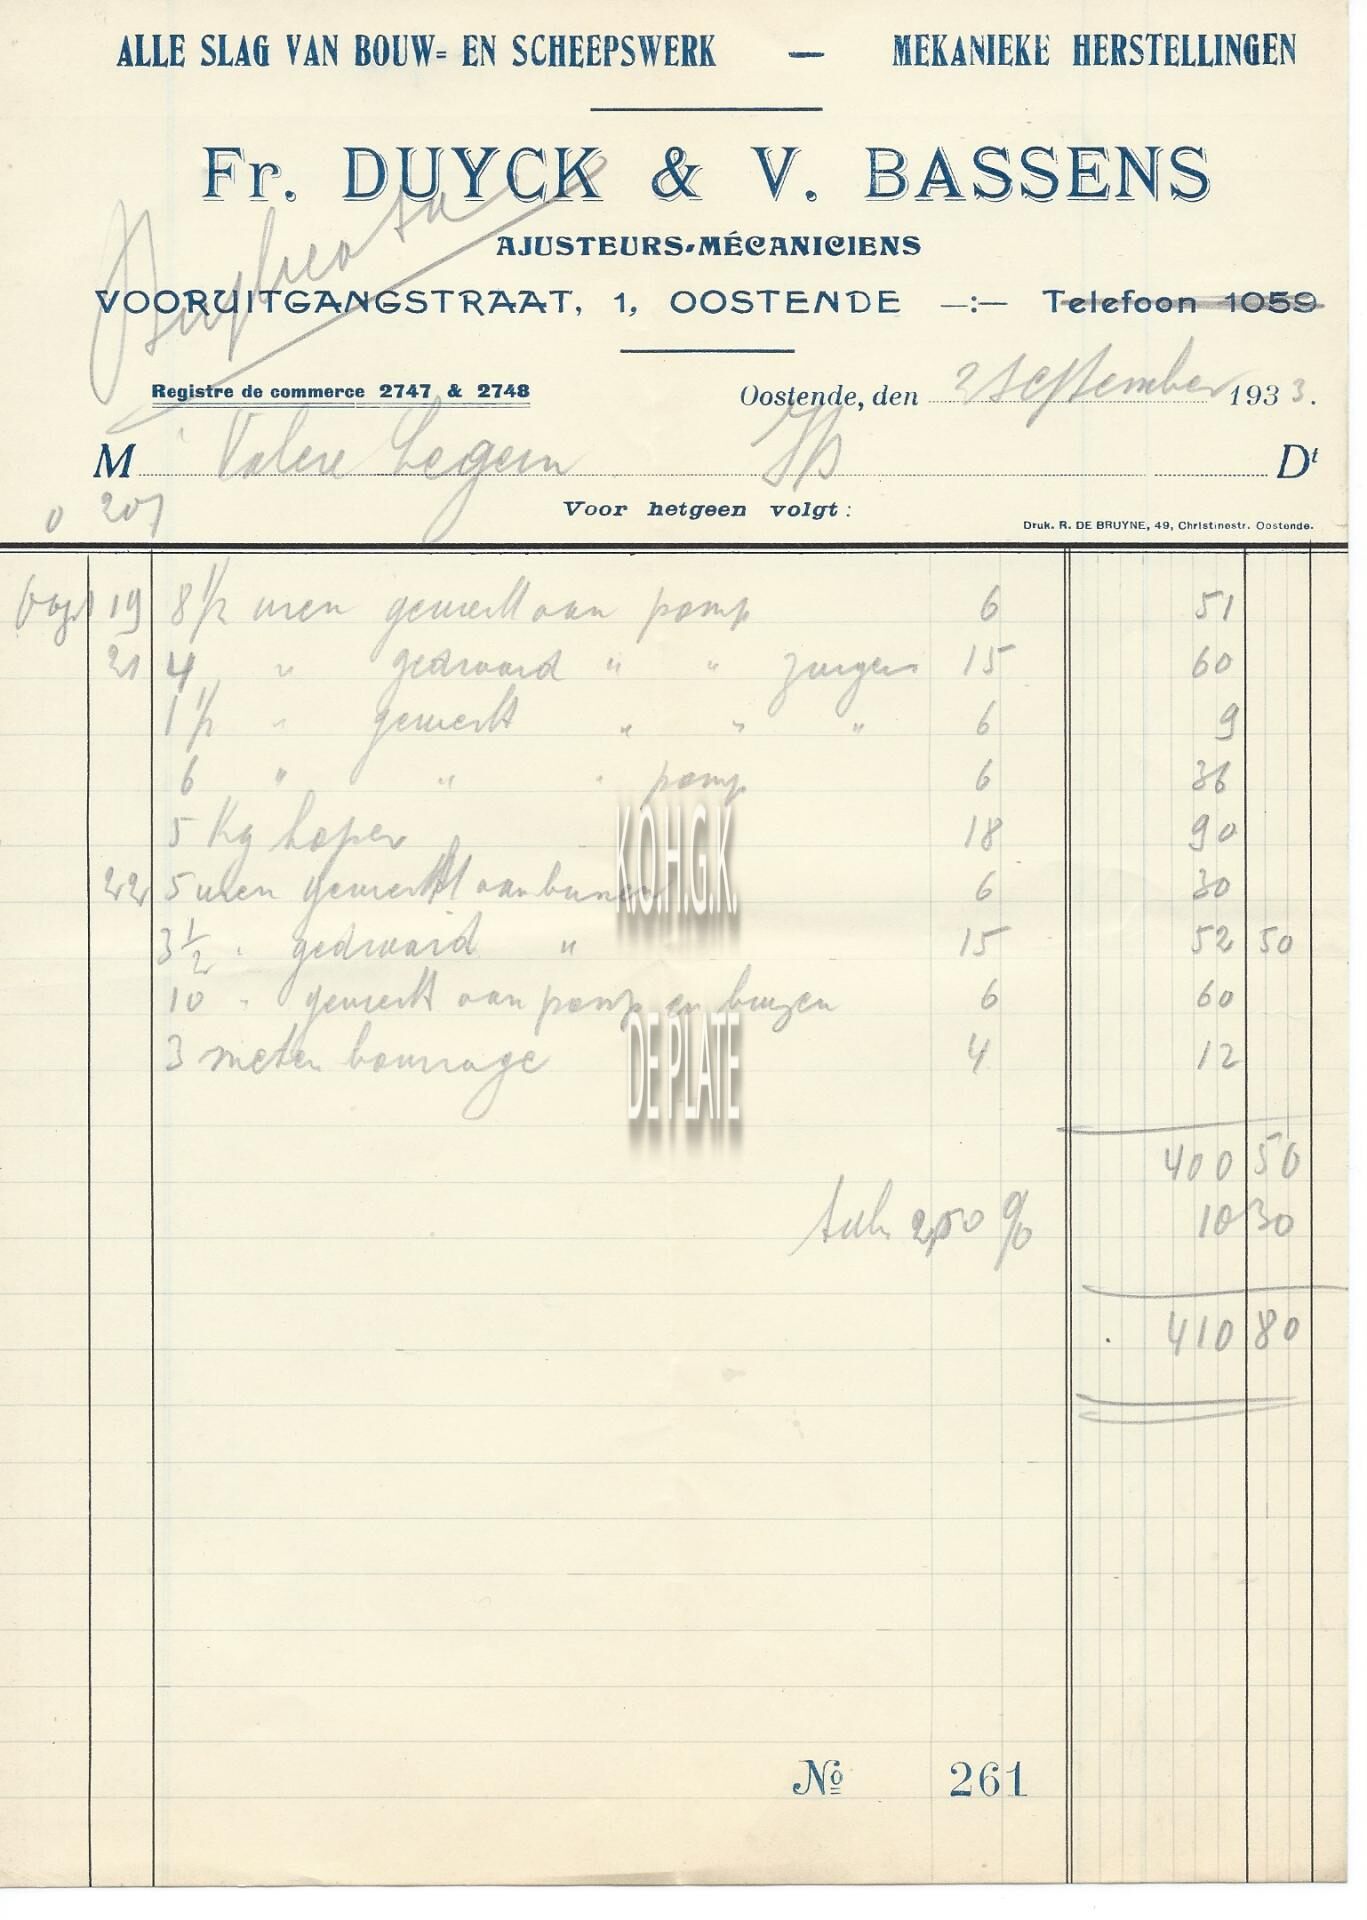 ALLE SLAG VAN BOUW= EN SCHEEPSWERK — MEKANIEKE HERSTELLINGEN
Fr. DUYCK & V. BASSENS
AJUSTEURS-MÉCANICIENS
VOORUITGANGSTRAAT, 1, OOSTENDE —:— Telefoon 1059
Registre de commerce 2747 & 2748
Oostende, den 2 september 1933.
M Valere Legein Dt
0 207
Voor hetgeen volgt:
Druk. R. DE BRUYNE, 49, Christinestr. Oostende.
19 8 1/2 uren gewerkt aan pomp 6 51
21 4 " gedraaid " " zuigers 15 60
1 1/2 " gewerkt " " " 6 9
6 " " " pomp 6 36
5 Kg koper 18 90
22 5 uren gewerkt aan 6 30
3 1/2 " gedraaid " 15 52 50
10 " gewerkt aan pomp en buizen 6 60
3 meter bourrage 4 12
400 50
2,50 % 10 30
410 80
K.O.H.G.K.
DE PLATE
No 261